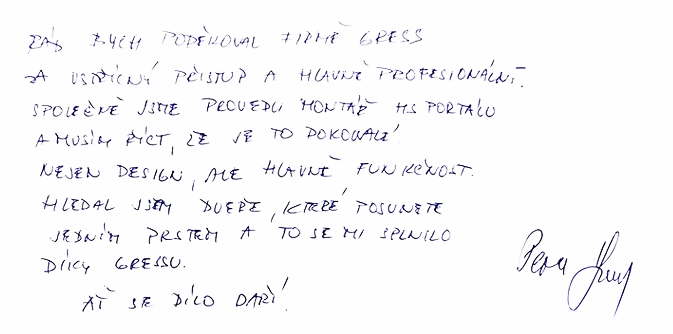 RÁD BYCH PODĚKOVAL FIRMĚ GRESS
ZA VSTŘÍCNÝ PŘÍSTUP A HLAVNĚ PROFESIONÁLNÍ.
SPOLEČNĚ JSME PROVEDLI MONTÁŽ HS PORTÁLU
A MUSÍM ŘÍCT, ŽE JE TO DOKONALÉ
NEJEN DESIGN, ALE HLAVNĚ FUNKČNOST.
HLEDAL JSEM DVEŘE, KTERÉ POSUNETE
JEDNÍM PRSTEM A TO SE MI SPLNILO
DÍKY GRESSU.
AŤ SE DÍLO DAŘÍ!